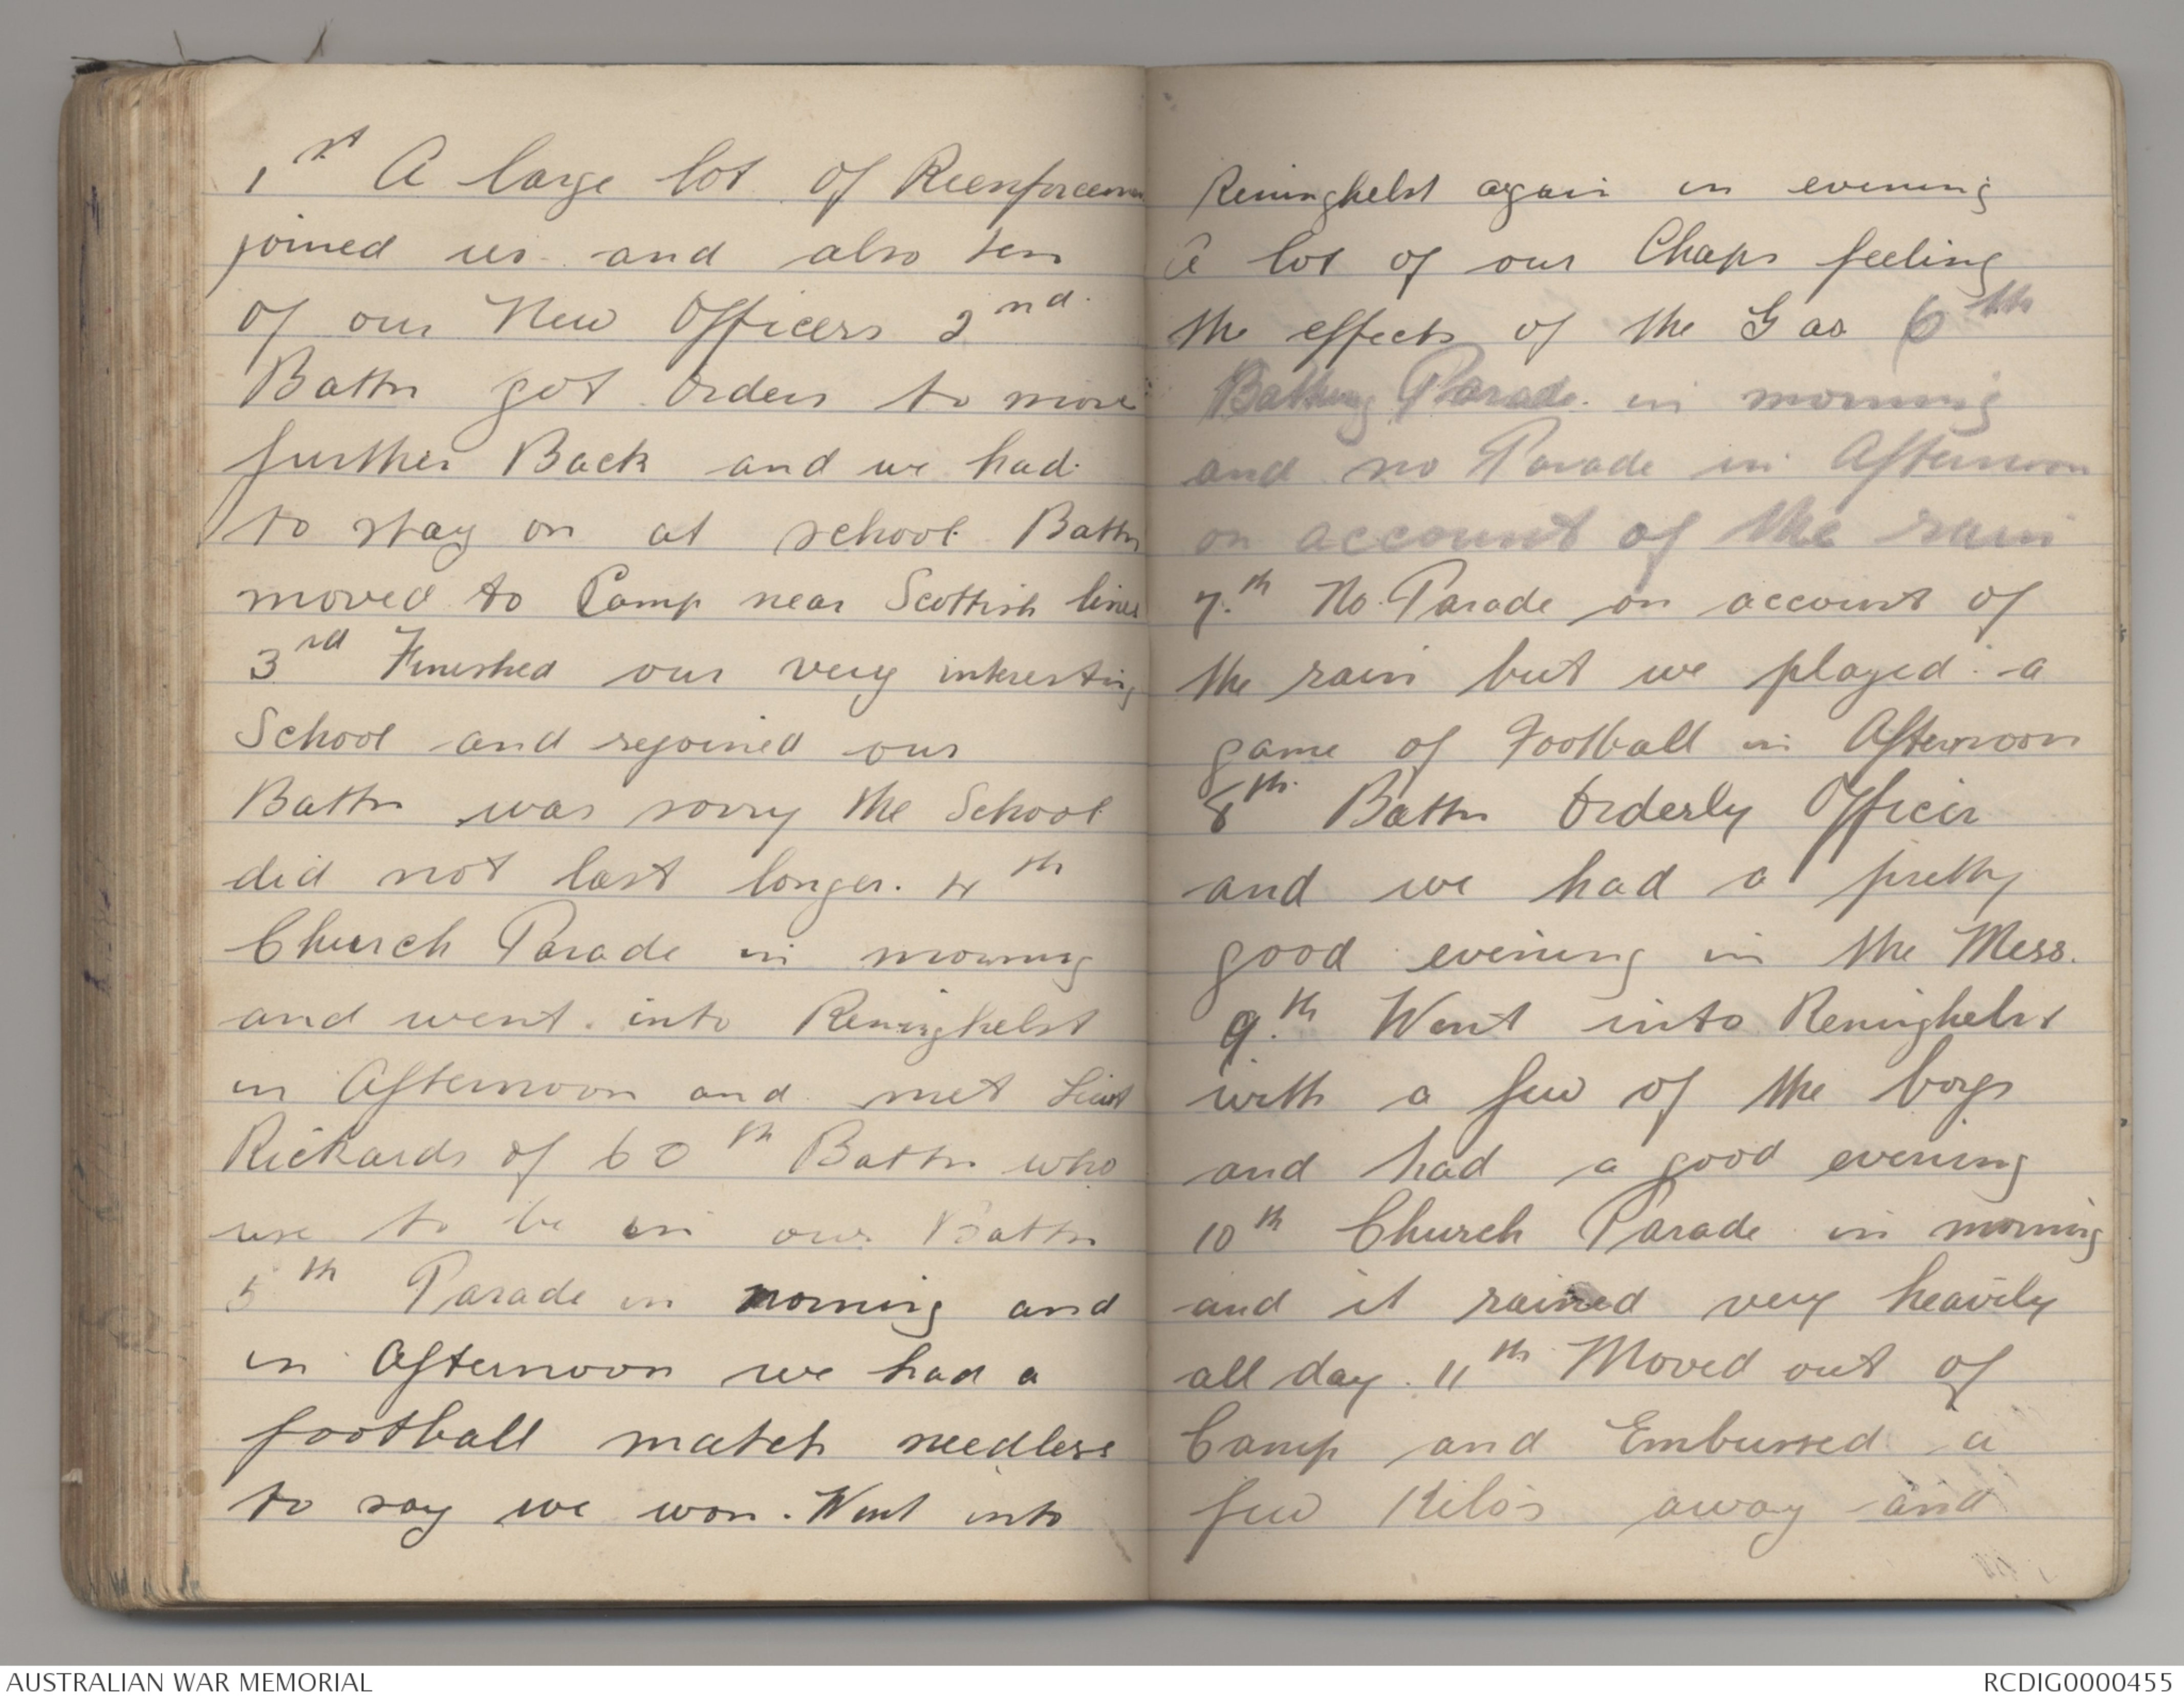 1st A large lot of Reenforcem
joined us and also ten
of our New Officers 2nd.
Battn got Orders to move
further Back and we had
to stay on at school. Battn
moved to Camp near Scottish lines
3rd Finished our very interesting
School and rejoined our
Battn was sorry the School
did not last longer. 4th
Church Parade in morning
and went into Reninghelst
in Afternoon and met Lieut
Rickards of 60th Battn who
use to be in our Battn
5th Parade in morning and
in Afternoon we had a
football match needless
to say we won. Went into
Reninghelst again in evening
A lot of our Chaps feeling
the effects of the Gas 6th
Bathing Parade in morning
and no Parade in Afternoon
on account of the rain
7th No Parade on account of
the rain but we played a
game of Football in Afternoon
8th. Battn Orderly Officer
and we had a pretty
good evening in the Mess.
9.th Went into Reninghelst
with a few of the boys
and had a good evening
10th Church Parade in morning
and it rained very heavily
all day. 11th Moved out of
Camp and Embussed a
few Kilo's away and
AUSTRALIAN WAR MEMORIAL
RCDIG0000455